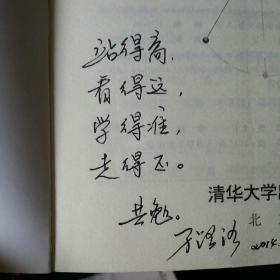 站得高,
看得远,
学得准,
走得正。
共勉。
清华大学
北
2014.